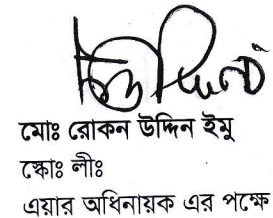 মোঃ রোকন উদ্দিন ইমু
স্কোঃ লীঃ
এয়ার অধিনায়ক এর পক্ষে